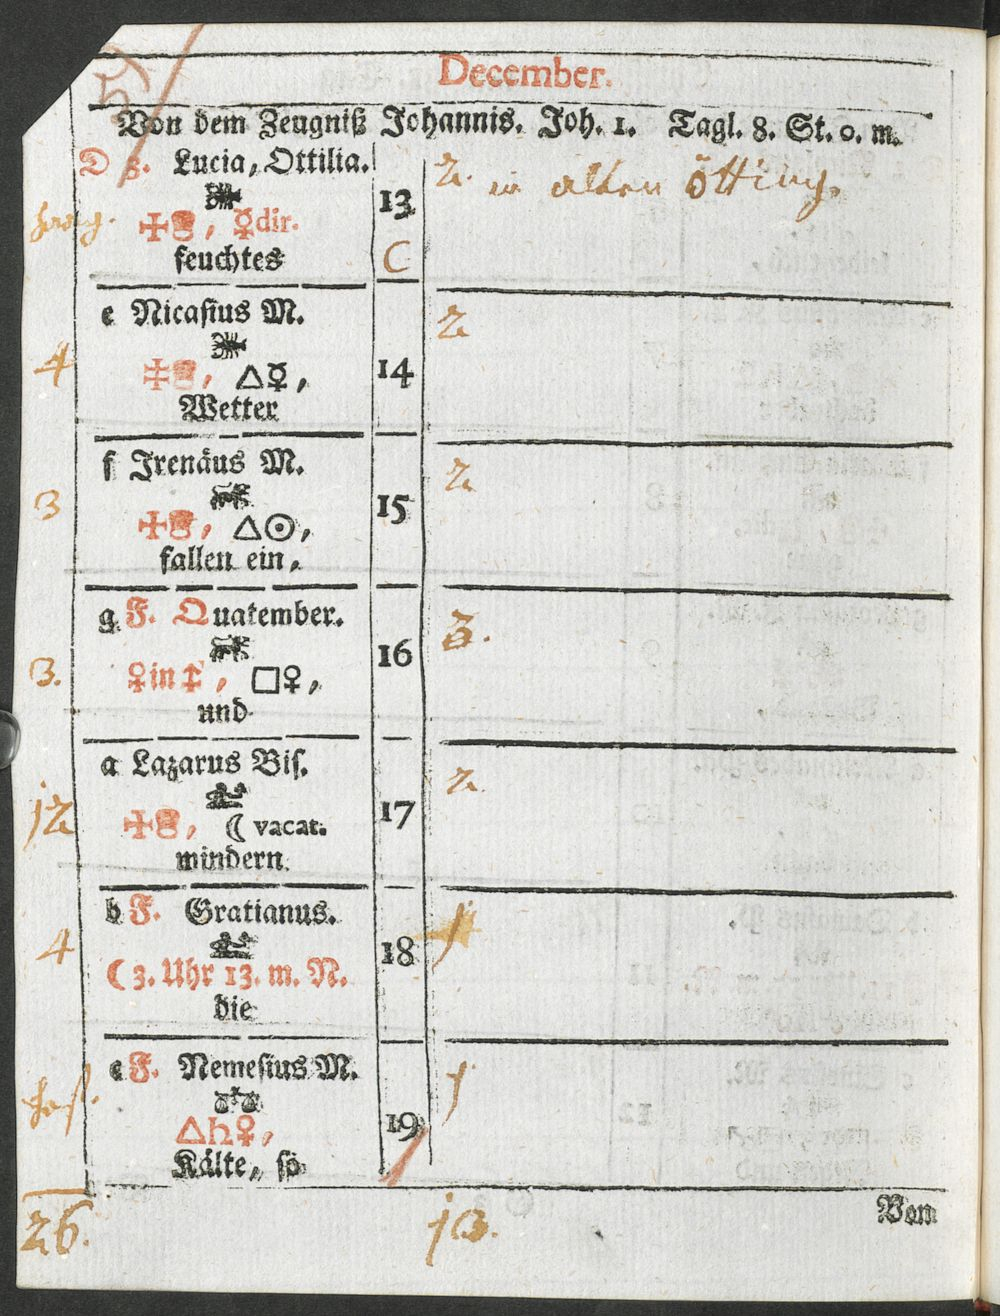 December.
Von dem Zeugniß Johannis. Joh. 1. Tagl. 8. St. 0. m.
D 3. Lucia, Ottilia.
13
2. in alten ötting.
☿dir.
feuchtes
C
e Nicasius M.
2
4
△☿,
14
Wetter
f Irenäus M.
2
3
△☉,
15
fallen ein,
g F. Quatember.
3.
♀in♐, □♀,
16
und
a Lazarus Bis.
2
12
☾ vacat.
17
mindern
b F. Gratianus.
1
4
18
☾ 3. Uhr 13. m. N.
die
c F. Nemesius M.
1
△♄♀,
19
Kälte, so
26.
10.
Vom